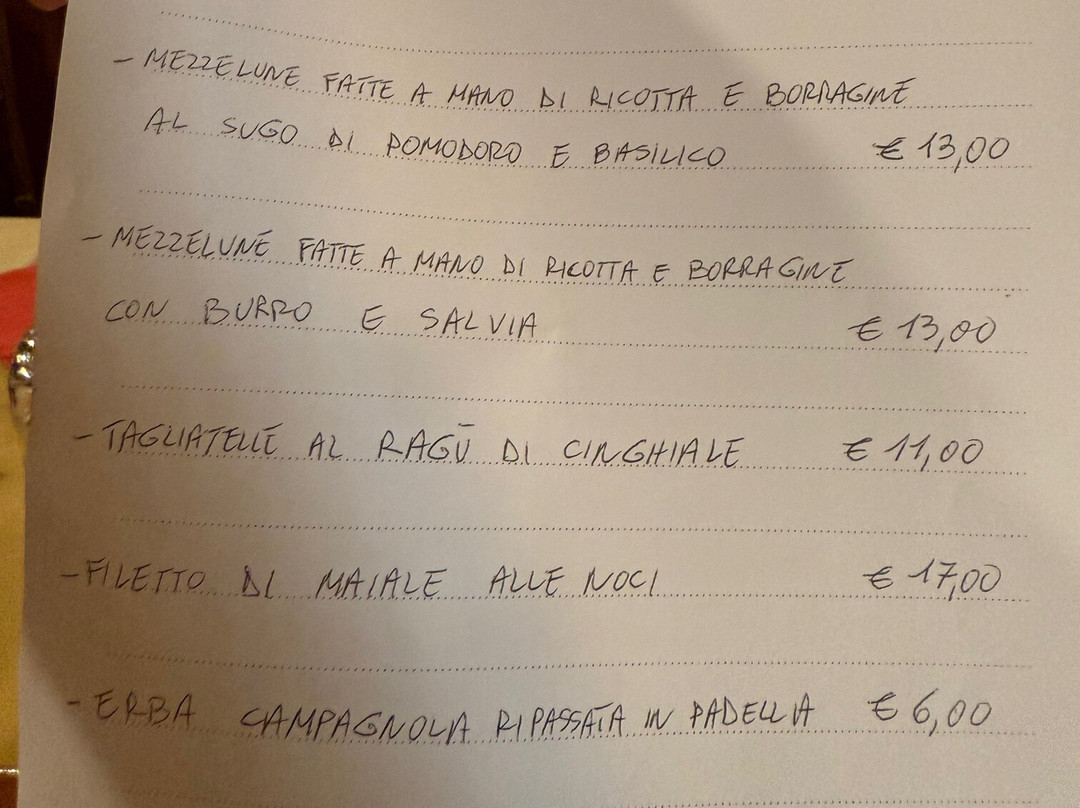 - MEZZELUNE FATTE A MANO DI RICOTTA E BORRAGINE
AL SUGO DI POMODORO E BASILICO € 13,00
- MEZZELUNE FATTE A MANO DI RICOTTA E BORRAGINE
CON BURRO E SALVIA € 13,00
- TAGLIATELLE AL RAGÙ DI CINGHIALE € 11,00
- FILETTO DI MAIALE ALLE NOCI € 17,00
- ERBA CAMPAGNOLA RIPASSATA IN PADELLA € 6,00